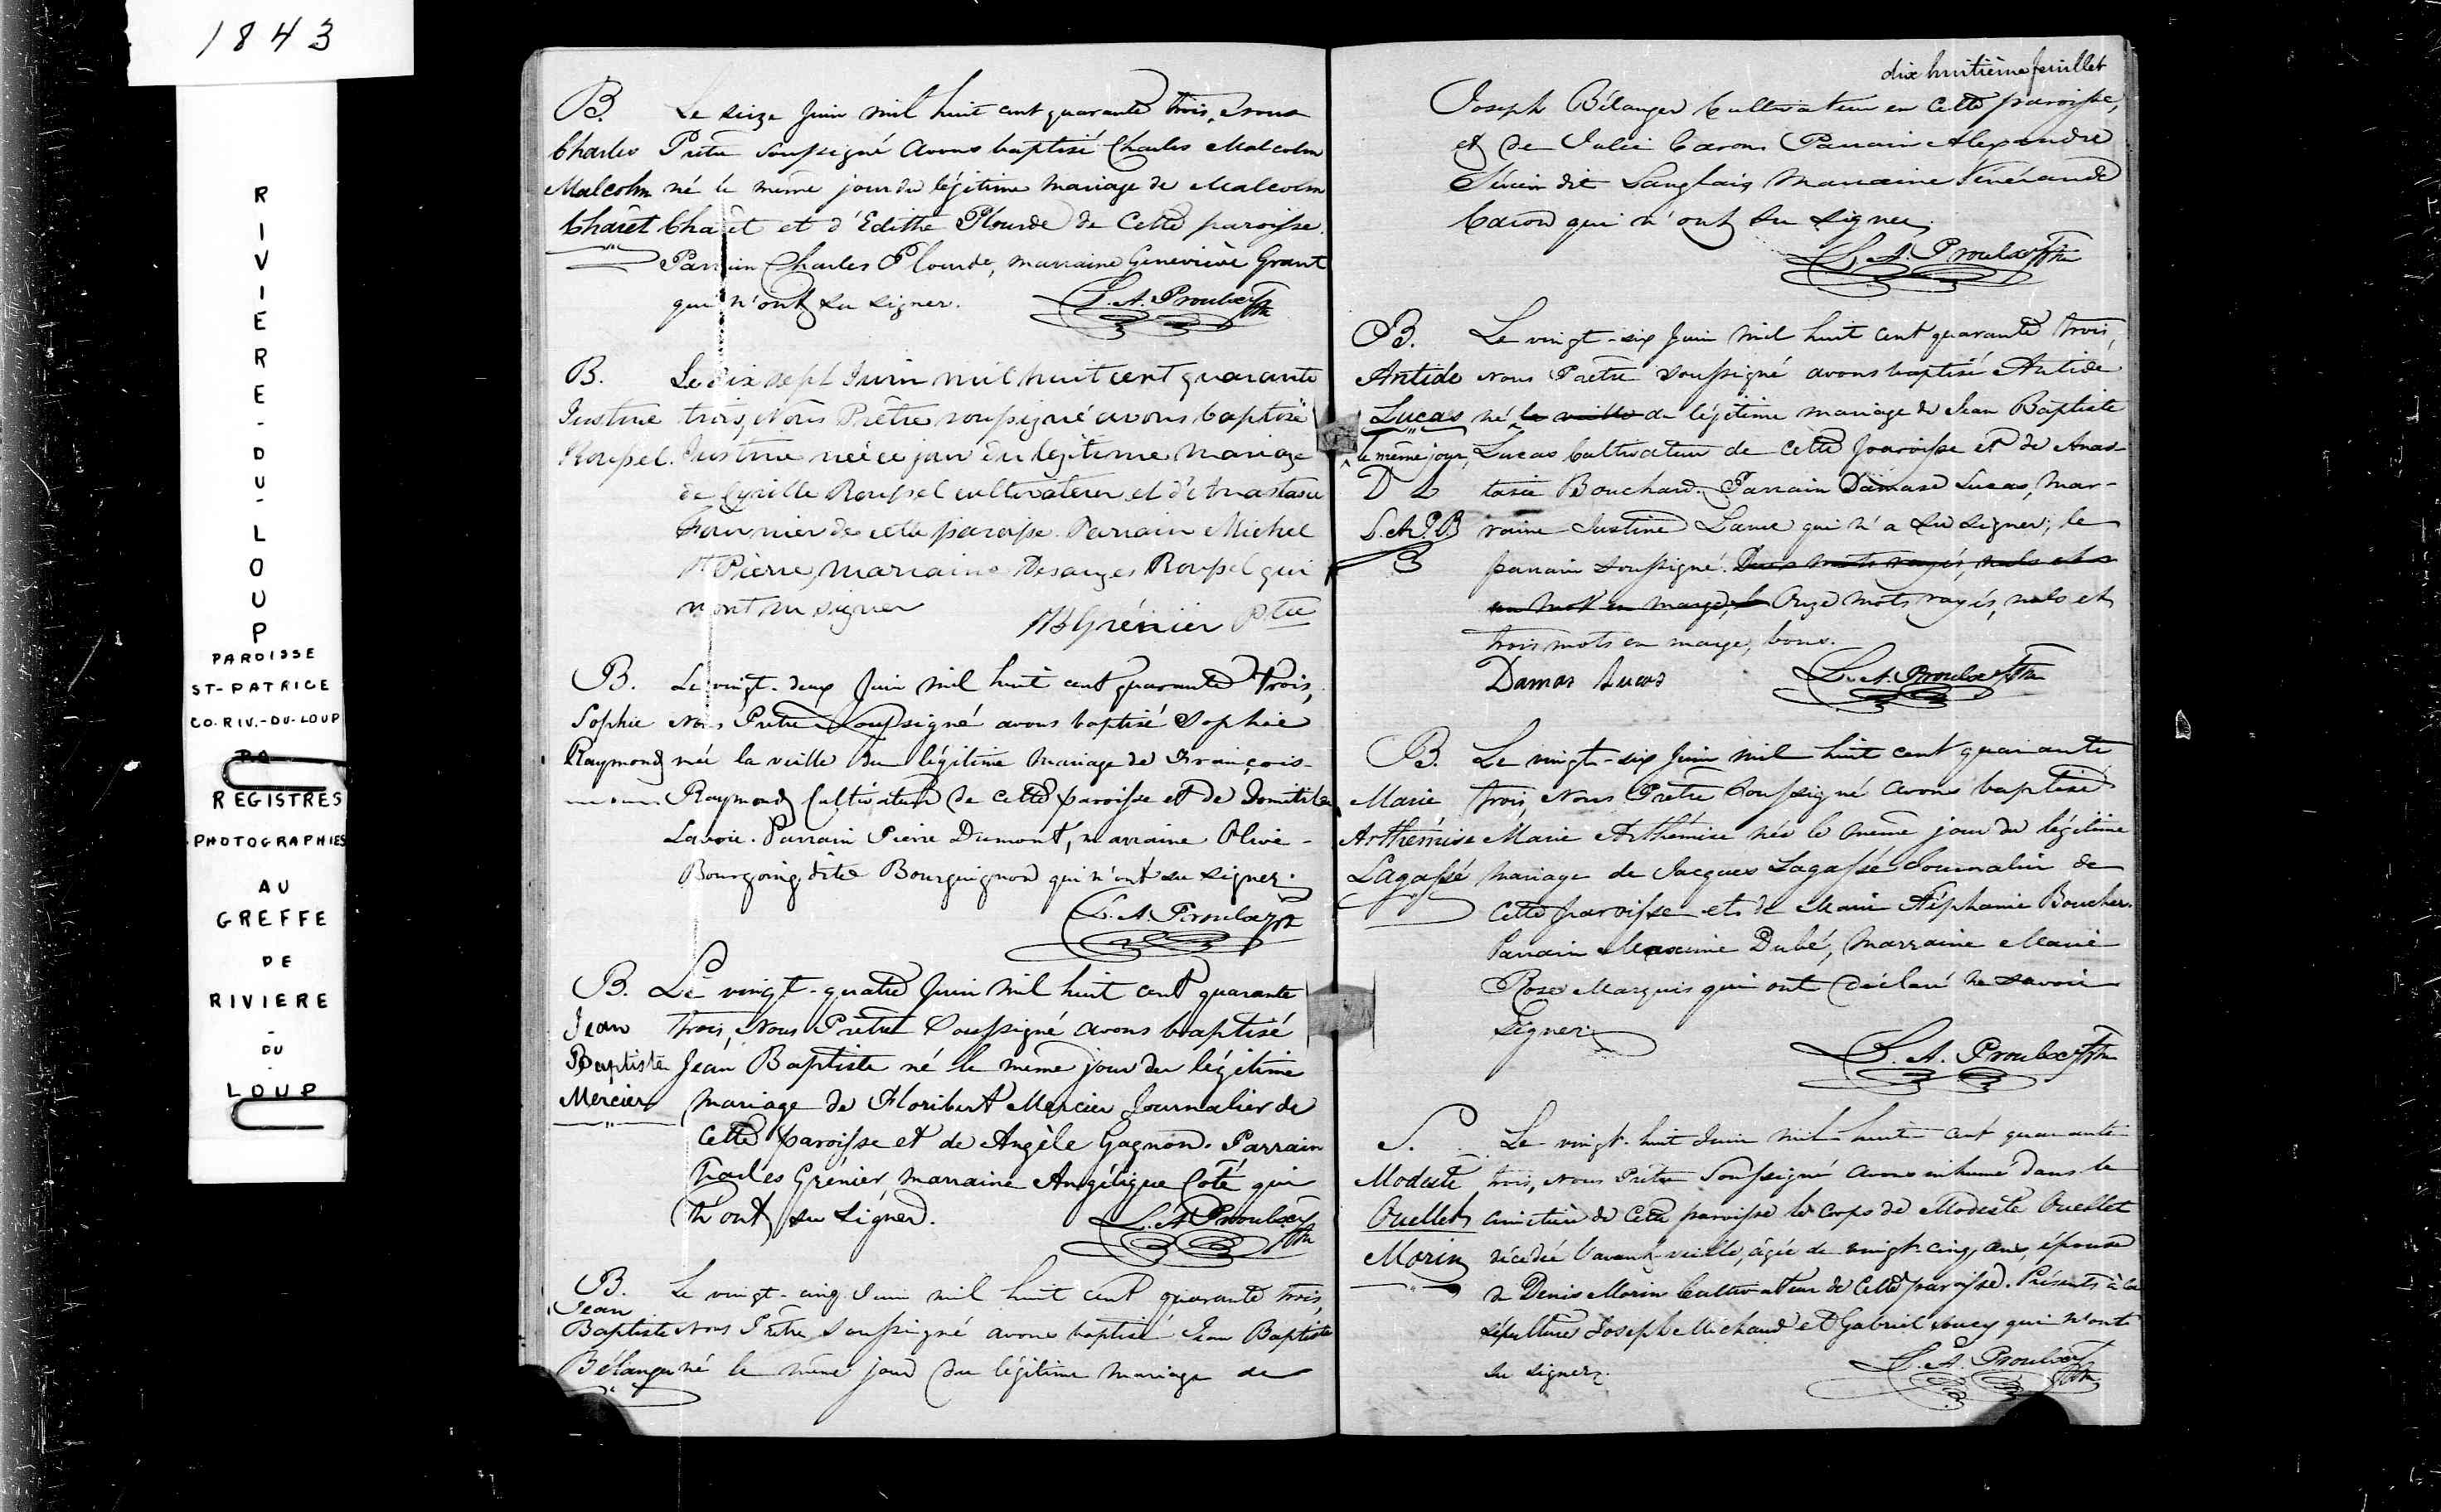 1843
RIVIERE-DU-LOUP
PAROISSE
ST-PATRICE
CO. RIV.-DU-LOUP
PQ
REGISTRES
PHOTOGRAPHIES
AU
GREFFE
DE
RIVIERE
-
DU
-
LOUP
B.
Charles
Malcolm
Charêt
Le seize Juin mil huit cent quarante trois, nous
Prêtre soussigné avons baptisé Charles Malcolm
né le même jour du légitime mariage de Malcolm
Charêt et d'Edithe Plourde de cette paroisse.
Parrain Charles Plourde, marraine Geneviève Grant
qui n'ont su signer. L. A. Proulx Ptre
B.
Justine
Roussel.
Le dix sept Juin mil huit cent quarante
trois, Nous Prêtre soussigné avons baptisé
Justine née ce jour du légitime mariage
de Cyrille Roussel cultivateur et d'Anastasie
Fournier de cette paroisse. Parrain Michel
St Pierre, marraine Desanges Roussel qui
n'ont su signer
Grénier Ptre
B.
Sophie
Raymond
Le vingt-deux Juin mil huit cent quarante trois,
Nous Prêtre Soussigné avons baptisé Sophie
née la veille du légitime mariage de François
Raymond Cultivateur de cette paroisse et de Domitile
Lavoie. Parrain Pierre Dumont, marraine Olive
Bourgoing dite Bourguignon qui n'ont su signer.
L. A. Proulx Ptre
B.
Jean
Baptiste
Mercier
Le vingt-quatre Juin mil huit cent quarante
trois, Nous Prêtre Soussigné avons baptisé
Jean Baptiste né le même jour du légitime
mariage de Floribert Mercier Journalier de
cette paroisse et de Angèle Gagnon. Parrain
Charles Grénier, marraine Angélique Coté qui
n'ont su signer. L. A. Proulx Ptre
B.
Jean
Baptiste
Bélanger
Le vingt-cinq Juin mil huit cent quarante trois,
Nous Prêtre soussigné avons baptisé Jean Baptiste
né le même jour du légitime mariage de
dix huitième feuillet
Joseph Bélanger Cultivateur en cette paroisse,
et de Julie Caron. Parrain Alexandre
dit Langlais Marraine Vénérande
Caron qui n'ont su signer.
L. A. Proulx Ptre
B.
Antide
Lucas
le même jour,
D L
L. A. P. P
Le vingt-six Juin mil huit cent quarante trois,
nous Prêtre soussigné avons baptisé Antide
né la veille du légitime mariage de Jean Baptiste
Lucas Cultivateur de cette paroisse et de Anas-
tasie Bouchard. Parrain Damase Lucas, mar-
raine Justine qui n'a su signer; le
parrain soussigné. Deux mots rayés, nuls et
un mot en marge, Onze mots rayés, nuls et
trois mots en marge, bons.
Damas Lucas L. A. Proulx Ptre
B.
Marie
Arthémise
Lagassé
Le vingt-six Juin mil huit cent quarante
trois, Nous Prêtre Soussigné avons baptisé
Marie Arthémise née le même jour du légitime
mariage de Jacques Lagassé Journalier de
cette paroisse et de Marie Stéphanie Boucher.
Parrain Maxime Dubé, marraine Marie
Rose Marquis qui ont déclaré ne savoir
signer.
L. A. Proulx Ptre
S.
Modeste
Ouellet
Morin
Le vingt-huit Juin mil huit cent quarante
trois, Nous Prêtre Soussigné avons inhumé dans le
cimetière de cette paroisse le corps de Modeste Ouellet
décédée l'avant veille, âgée de vingt cinq ans, épouse
de Denis Morin Cultivateur de cette paroisse. Présents à la
sépulture Joseph Michaud et Gabriel Soucy qui n'ont
su signer.
L. A. Proulx Ptre